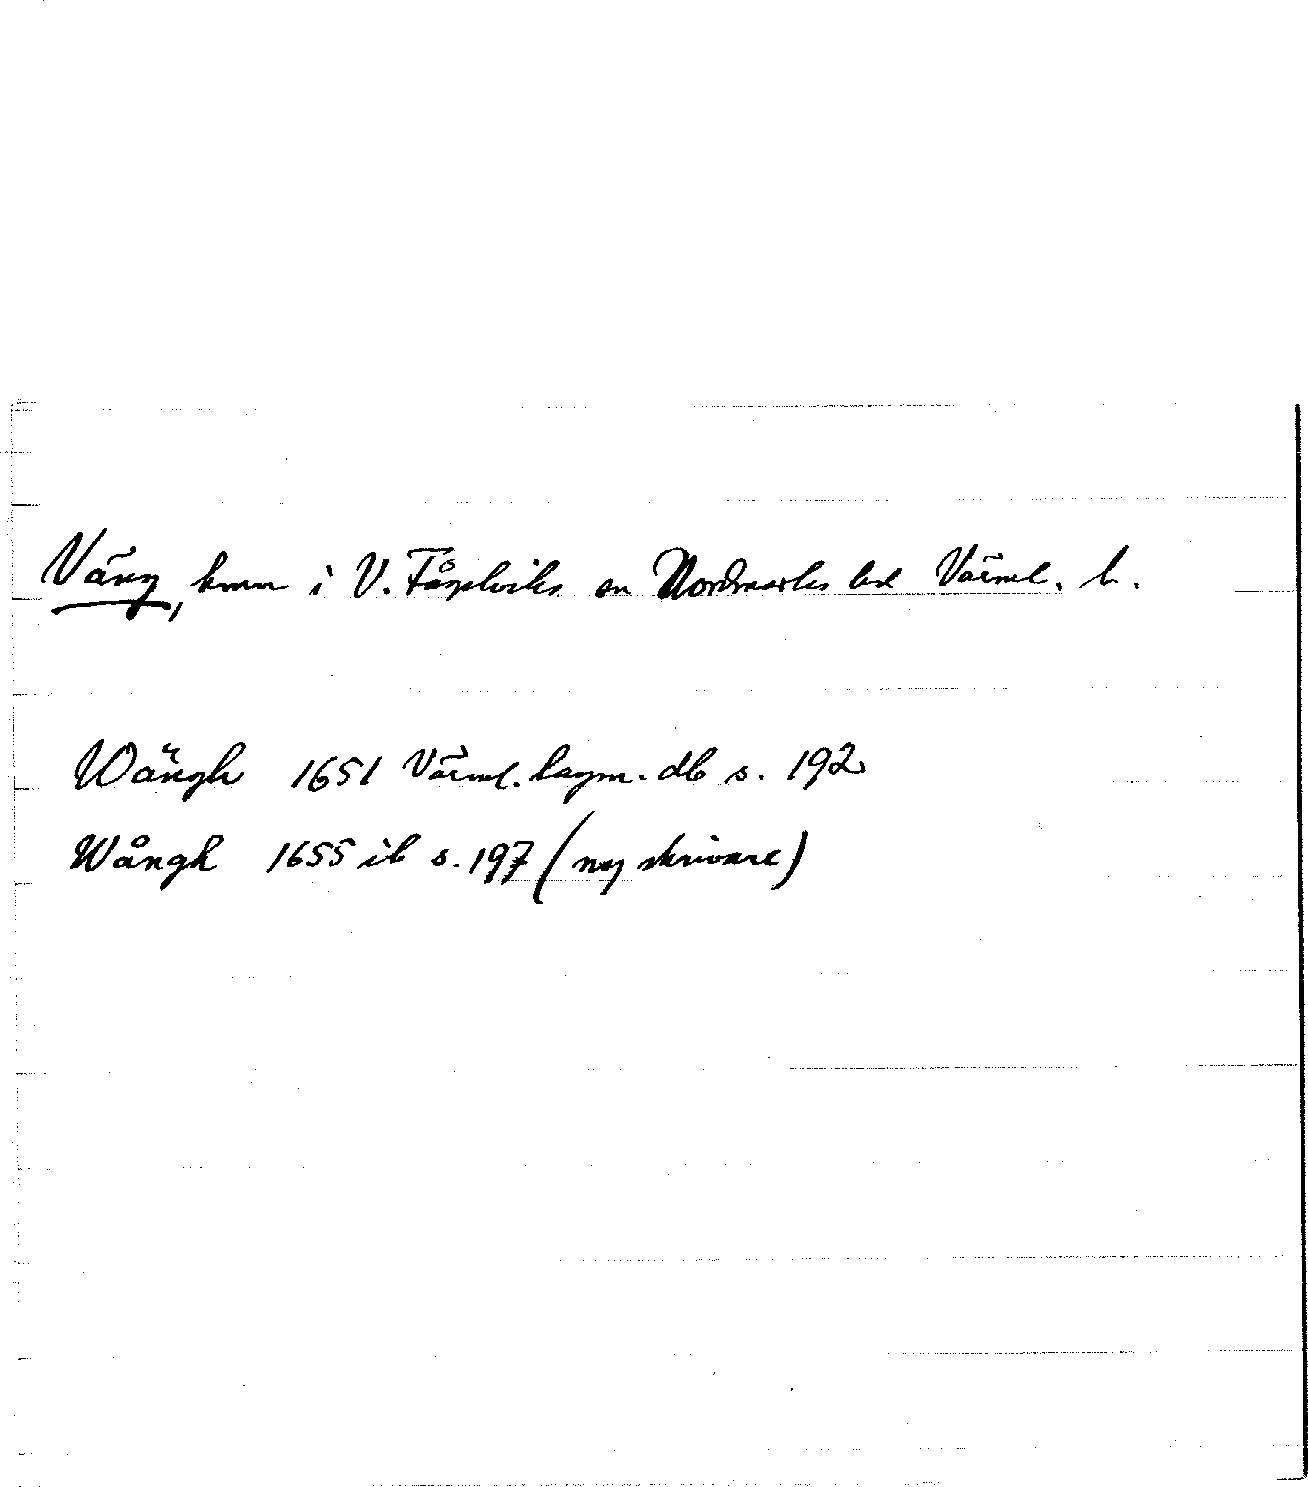 Väng, hmn i V. Fågelviks sn Nordmarks hd Värml. l.
Wängh 1651 Värml. lagm. db s. 192
Wångh 1655 ib s. 197 (ny skrivare)